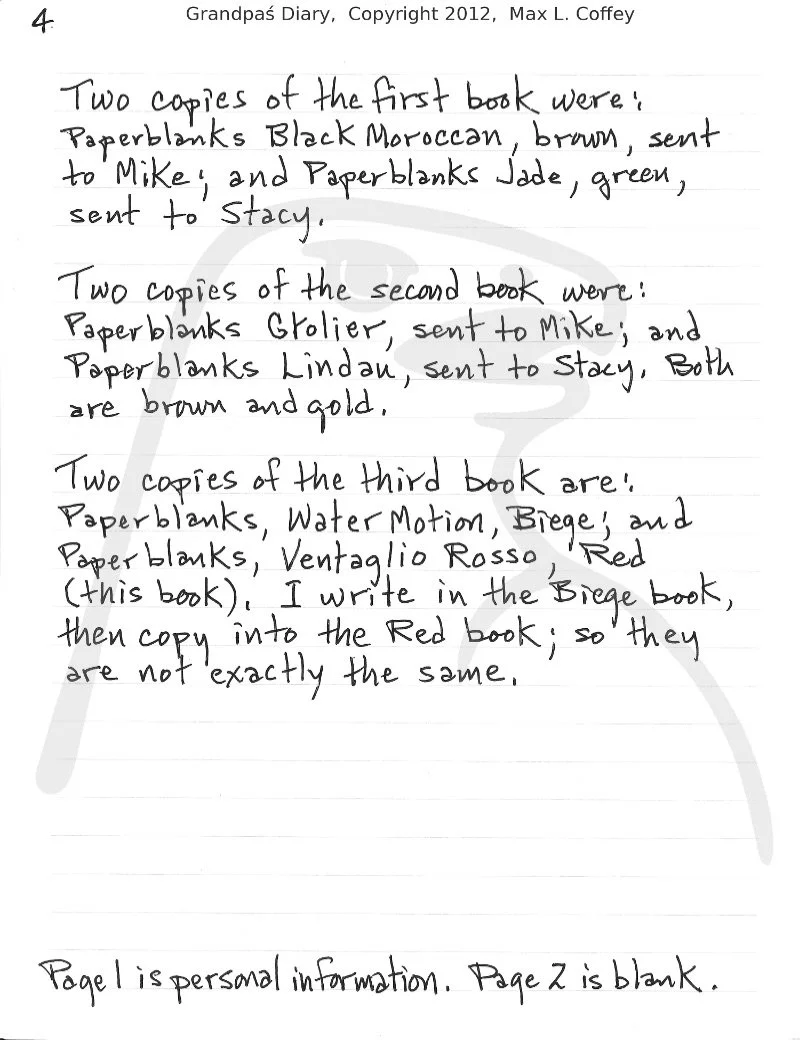 4
Grandpaś Diary, Copyright 2012, Max L. Coffey
Two copies of the first book were:
Paperblanks Black Moroccan, brown, sent
to Mike; and Paperblanks Jade, green,
sent to Stacy.
Two copies of the second book were:
Paperblanks Grolier, sent to Mike; and
Paperblanks Lindau, sent to Stacy. Both
are brown and gold.
Two copies of the third book are:
Paperblanks, Water Motion, Biege; and
Paperblanks, Ventaglio Rosso, Red
(this book). I write in the Biege book,
then copy into the Red book; so they
are not exactly the same.
Page 1 is personal information. Page 2 is blank.